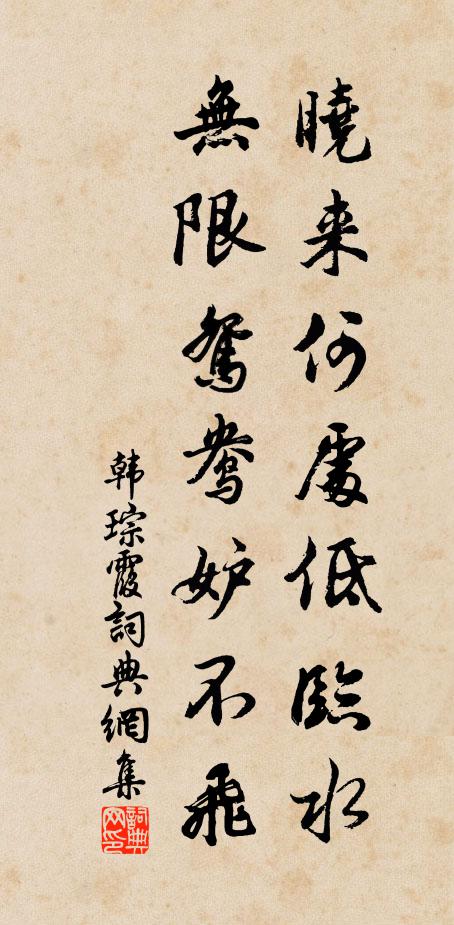 曉来何處低臨水
無限鴛鴦妒不飛
韩琮霞詞典網集
詞典网印